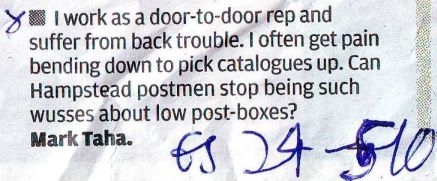 I work as a door-to-door rep and
suffer from back trouble. I often get pain
bending down to pick catalogues up. Can
Hampstead postmen stop being such
wusses about low post-boxes?
Mark Taha.
ES 24-5-10